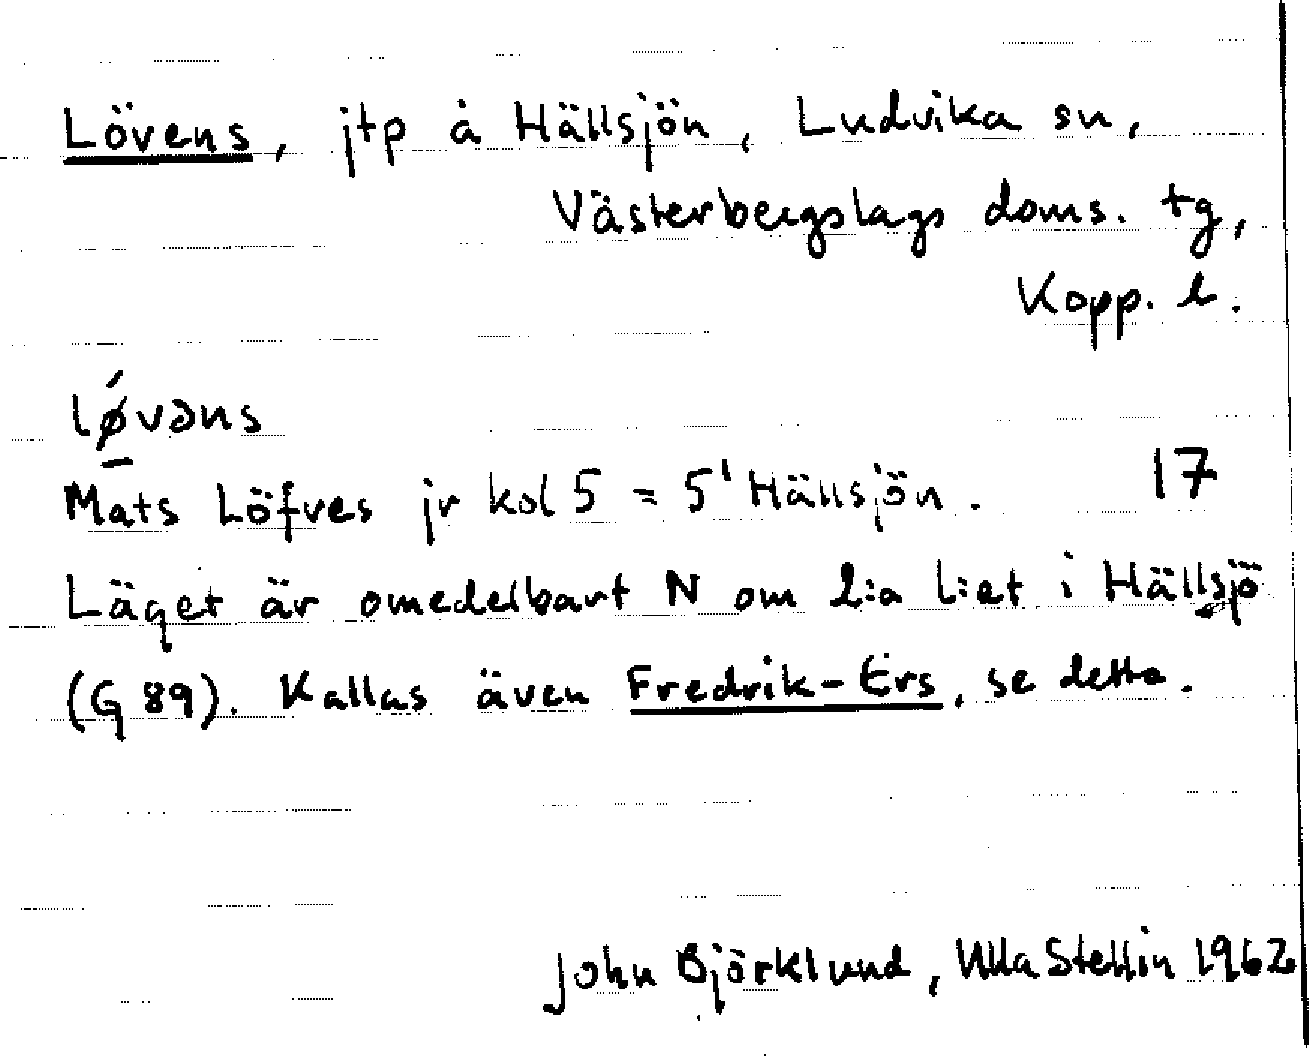 Lövens, jtp å Hällsjön, Ludvika sn,
Västerbergslags doms. tg,
Kopp. l.
lǿ̱vəns
Mats Löfves jr kol 5 = 5¹ Hällsjön. 17
Läget är omedelbart N om 2:a l:et i Hällsjö
(G 89). Kallas även Fredrik-Ers, se detta.
John Björklund, Ulla Stellin 1962